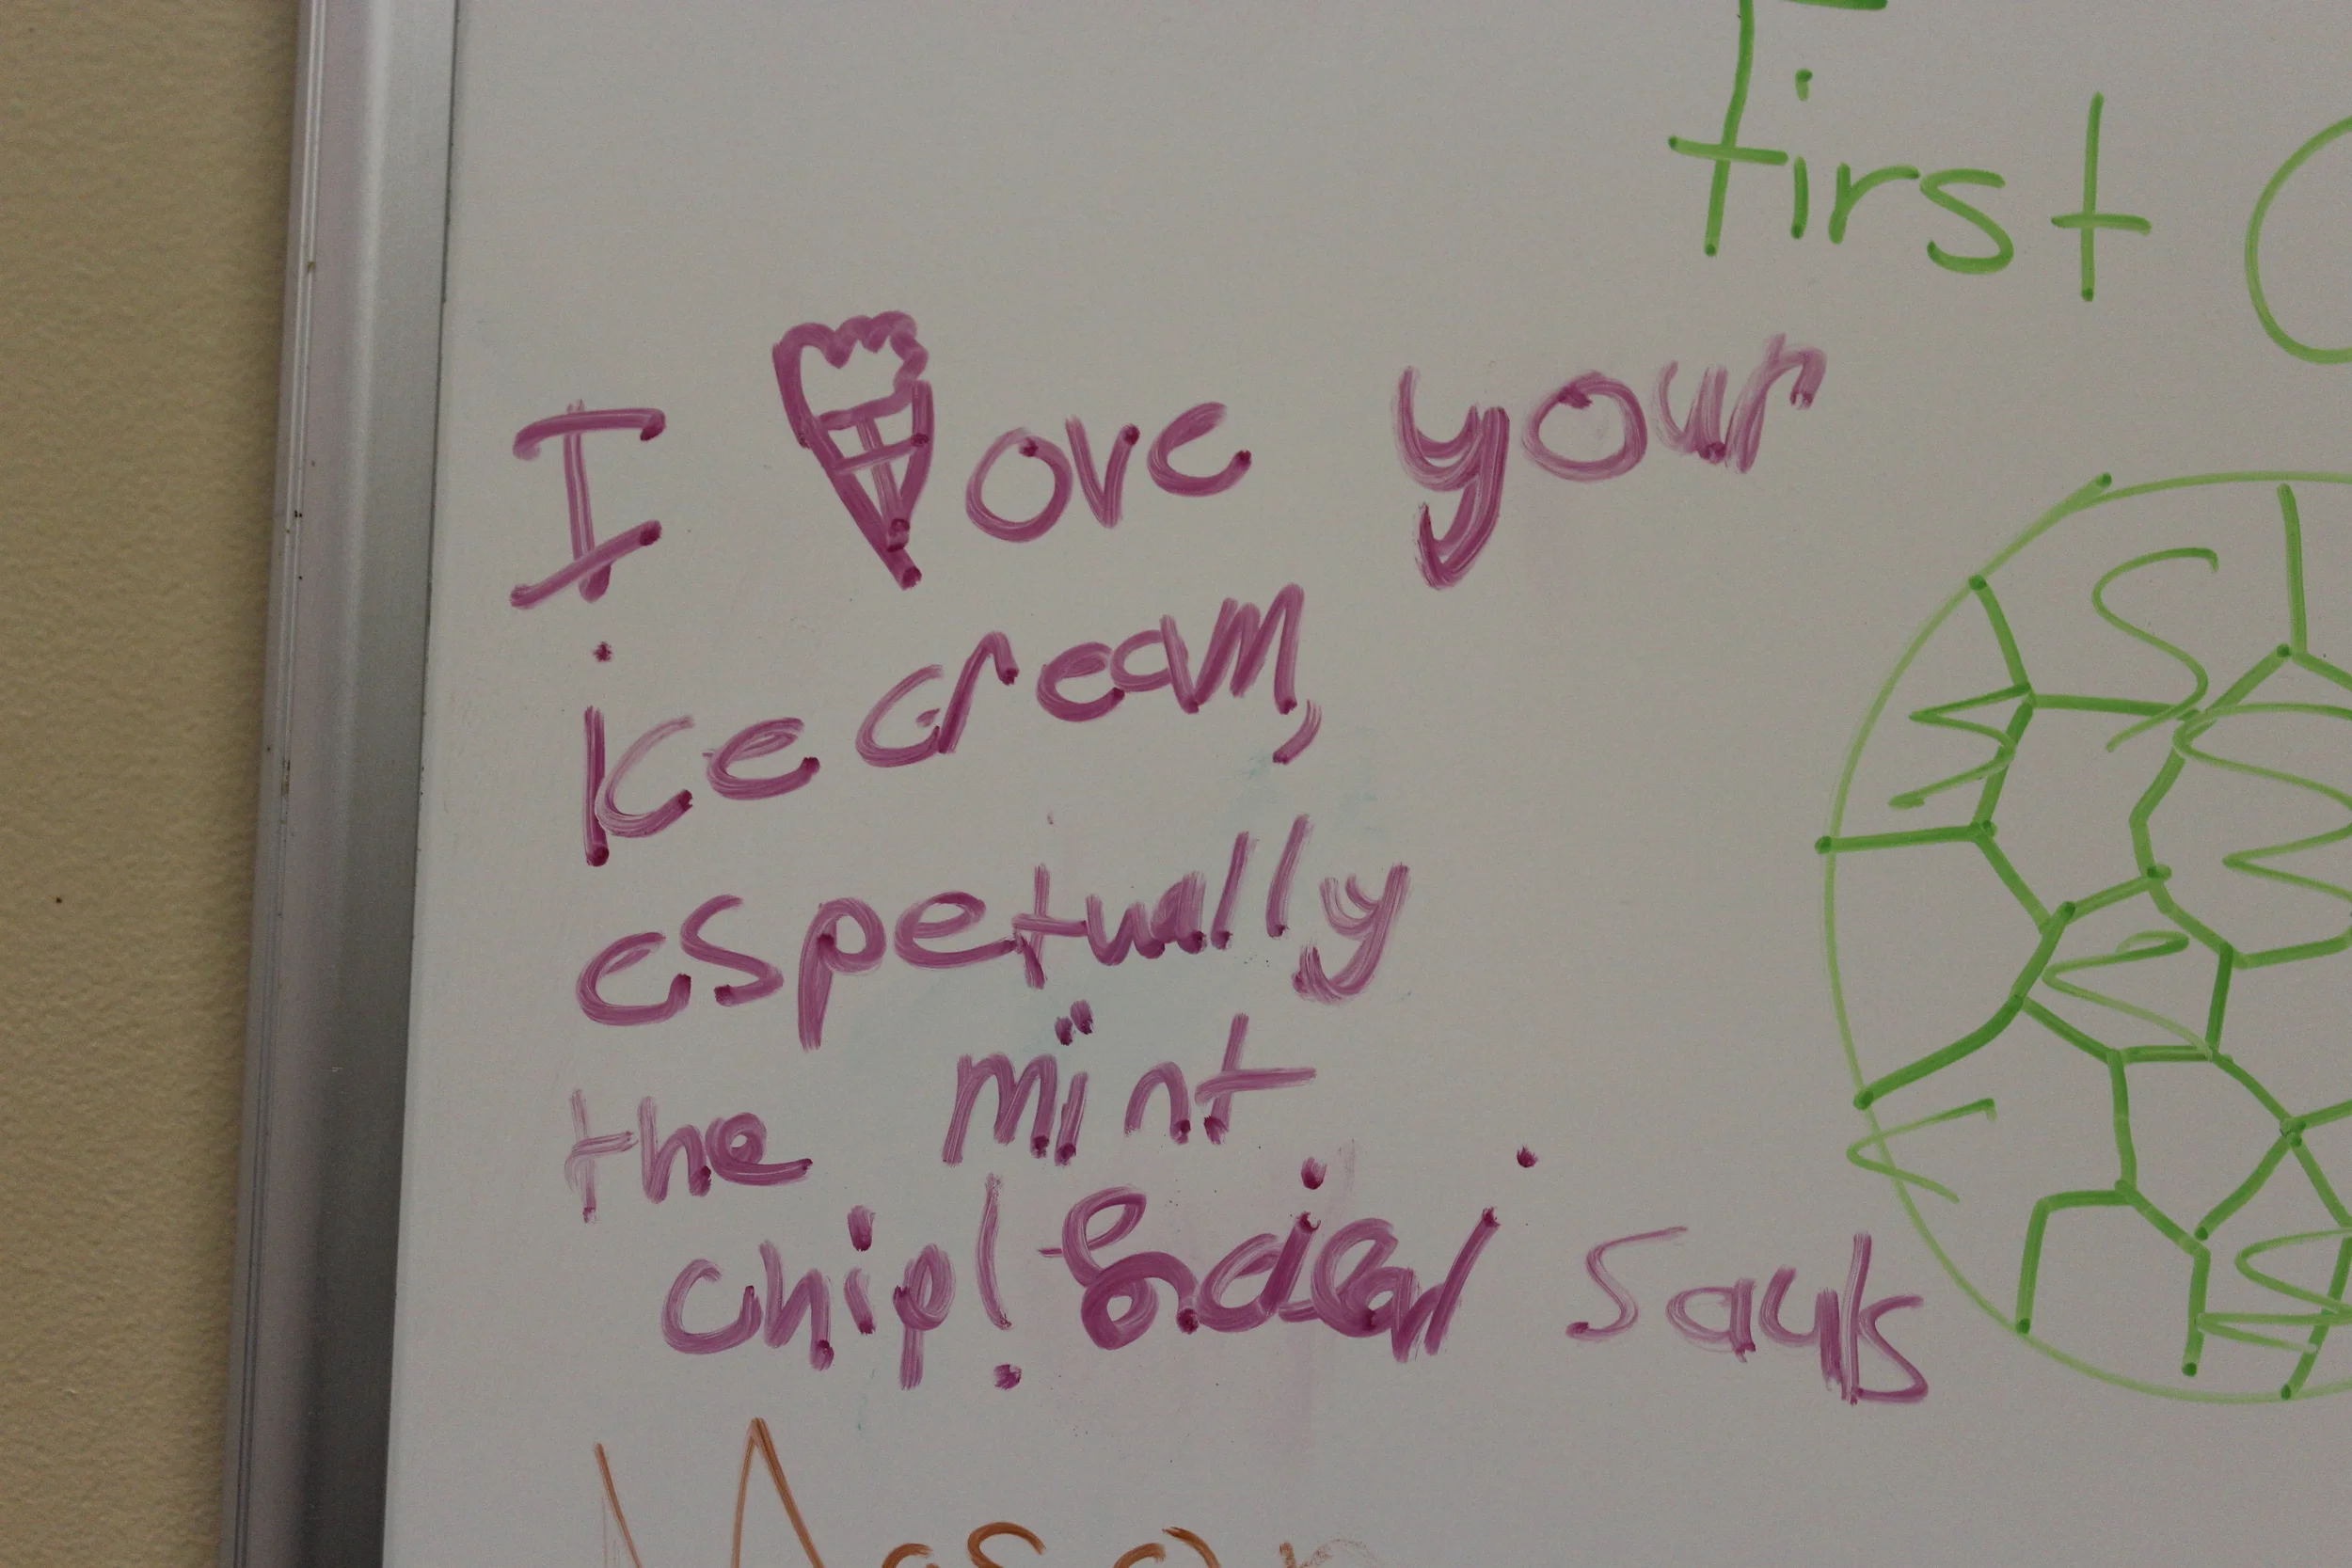 First
I love your
ice cream,
espetually
the mint
chip!
Mason